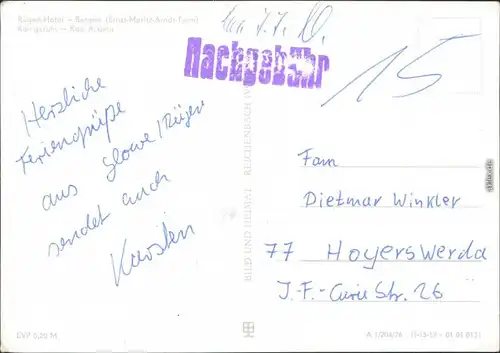 Rügen-Hotel - Bergen (Ernst-Moritz-Arndt-Turm)
Königsstuhl - Kap Arkona
Nachgebühr
15
Herzliche
Feriengrüße
aus Glowe/Rügen
sendet euch
Karsten
BILD UND HEIMAT REICHENBACH
Fam
Dietmar Winkler
77 Hoyerswerda
J.-F.-Curie Str. 26
EVP 0,20 M
A 1/204/76 01 01 0121